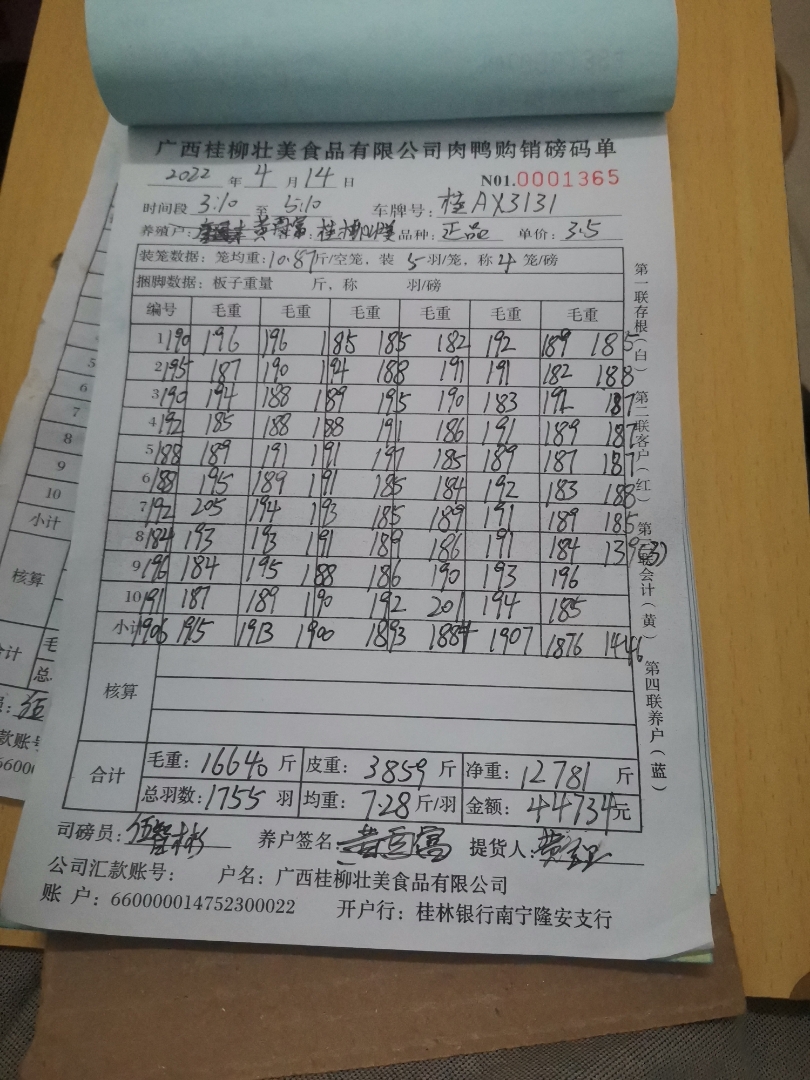 广西桂柳壮美食品有限公司肉鸭购销磅码单
2022 年 4 月 14 日 N01.0001365
时间段 3:10 至 5:10 车牌号: 桂AX3131
养殖户: 品种: 正品 单价: 3.5
装笼数据: 笼均重: 10.87斤/空笼, 装 5 羽/笼, 称 4 笼/磅
捆脚数据: 板子重量 斤, 称 羽/磅
编号 毛重 毛重 毛重 毛重 毛重 毛重
1 190 196 196 185 185 182 192 189 185
2 195 187 190 194 188 191 191 182 188
3 190 194 188 189 195 190 183 192 187
4 192 185 188 188 191 186 191 189 187
5 188 189 191 191 197 185 189 187 187
6 188 195 189 191 185 184 192 183 188
7 192 205 194 193 185 189 191 189 185
8 184 193 193 191 189 186 191 184 139(3)
9 196 184 195 188 186 190 193 196
10 191 187 189 190 192 201 194 185
小计 1906 1915 1913 1900 1893 1884 1907 1876 1446
核算
合计 毛重: 16640 斤 皮重: 3859 斤 净重: 12781 斤
总羽数: 1755 羽 均重: 7.28 斤/羽 金额: 44734元
司磅员: 养户签名: 提货人:
公司汇款账号: 户名: 广西桂柳壮美食品有限公司
账 户: 660000014752300022 开户行: 桂林银行南宁隆安支行
第一联存根(白)
第二联客户(红)
第三联会计(黄)
第四联养户(蓝)
5
6
7
8
9
10
小计
核算
合计
毛
总
款账号
6600